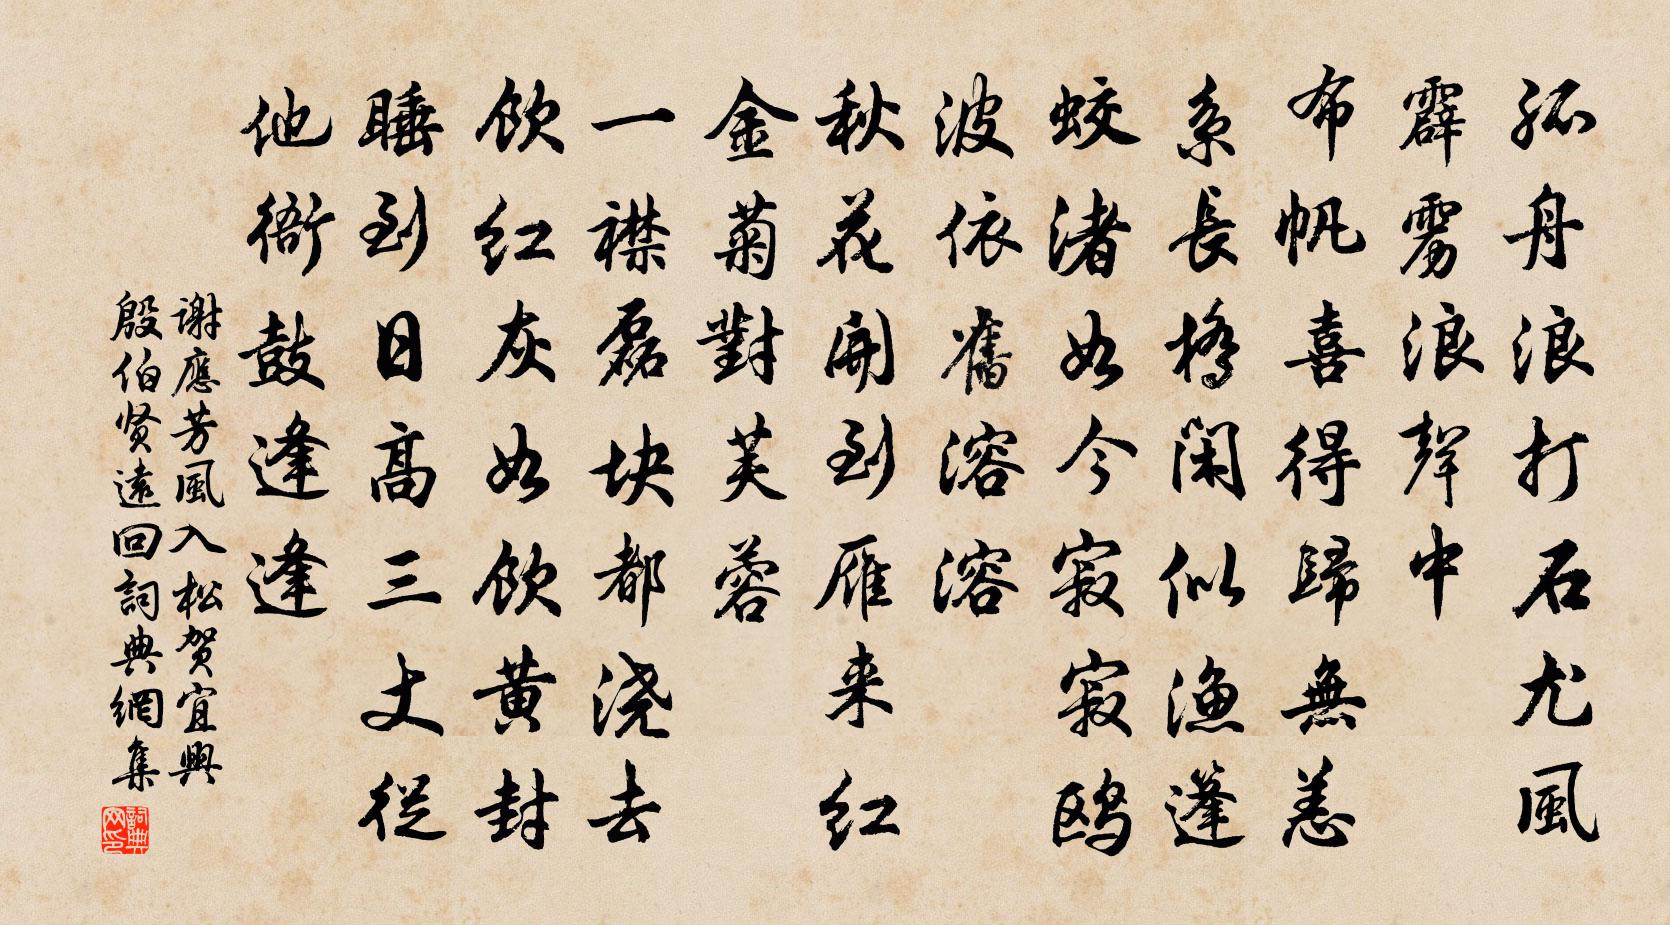 孤舟浪打石尤風
霹雳浪聲中
布帆喜得歸無恙
系長橋闲似漁蓬
蛟渚如今寂寂鸥
波依舊溶溶
秋花開到雁来红
金菊對芙蓉
一襟磊块都浇去
飲红灰如飲黄封
睡到日高三丈從
他衙鼓逢逢
谢應芳風入松贺宜興
殷伯贤遠回詞典網集
詞典
网印